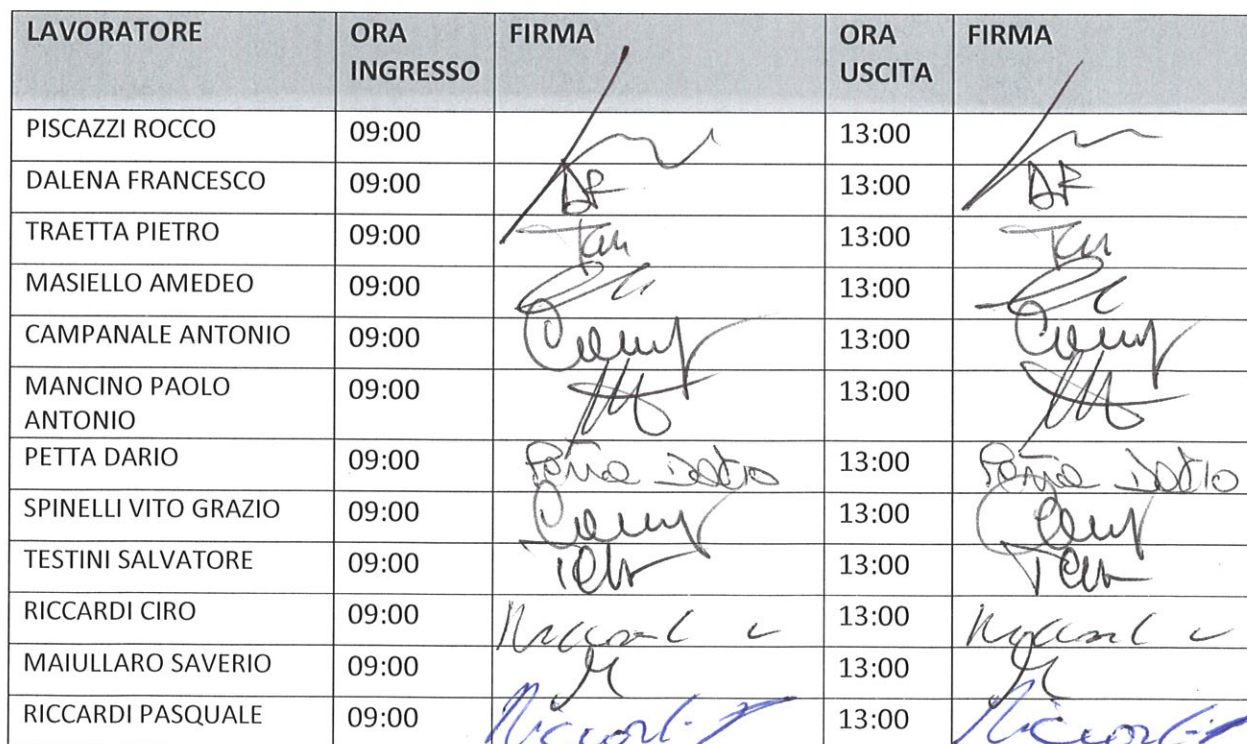 LAVORATORE ORA INGRESSO FIRMA ORA USCITA FIRMA
PISCAZZI ROCCO 09:00 13:00
DALENA FRANCESCO 09:00 DF 13:00 DF
TRAETTA PIETRO 09:00 13:00
MASIELLO AMEDEO 09:00 13:00
CAMPANALE ANTONIO 09:00 13:00
MANCINO PAOLO ANTONIO 09:00 13:00
PETTA DARIO 09:00 Petta Dario 13:00 Petta Dario
SPINELLI VITO GRAZIO 09:00 13:00
TESTINI SALVATORE 09:00 13:00
RICCARDI CIRO 09:00 13:00
MAIULLARO SAVERIO 09:00 13:00
RICCARDI PASQUALE 09:00 13:00